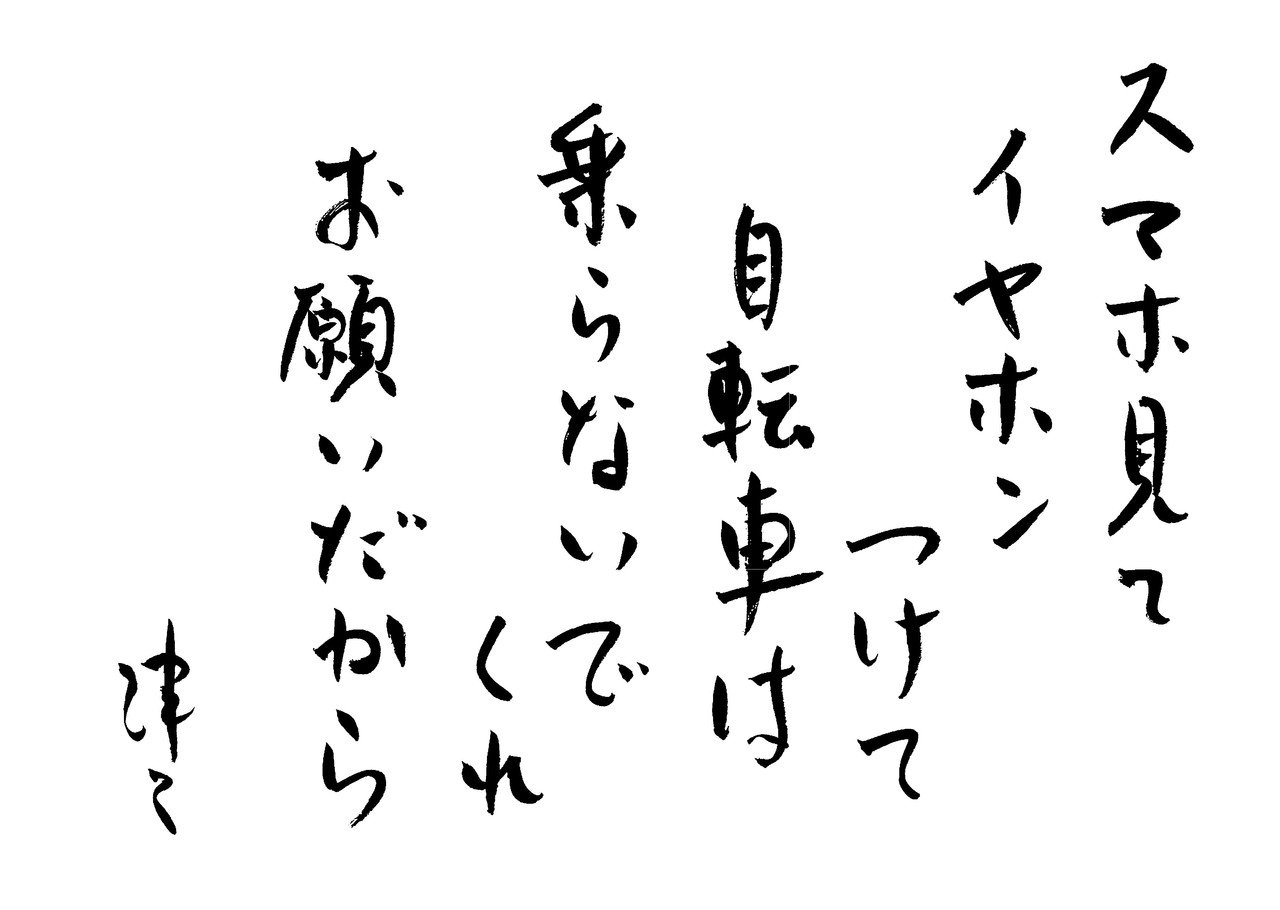 スマホ見て
イヤホン
つけて
自転車は
乗らないで
くれ
お願いだから